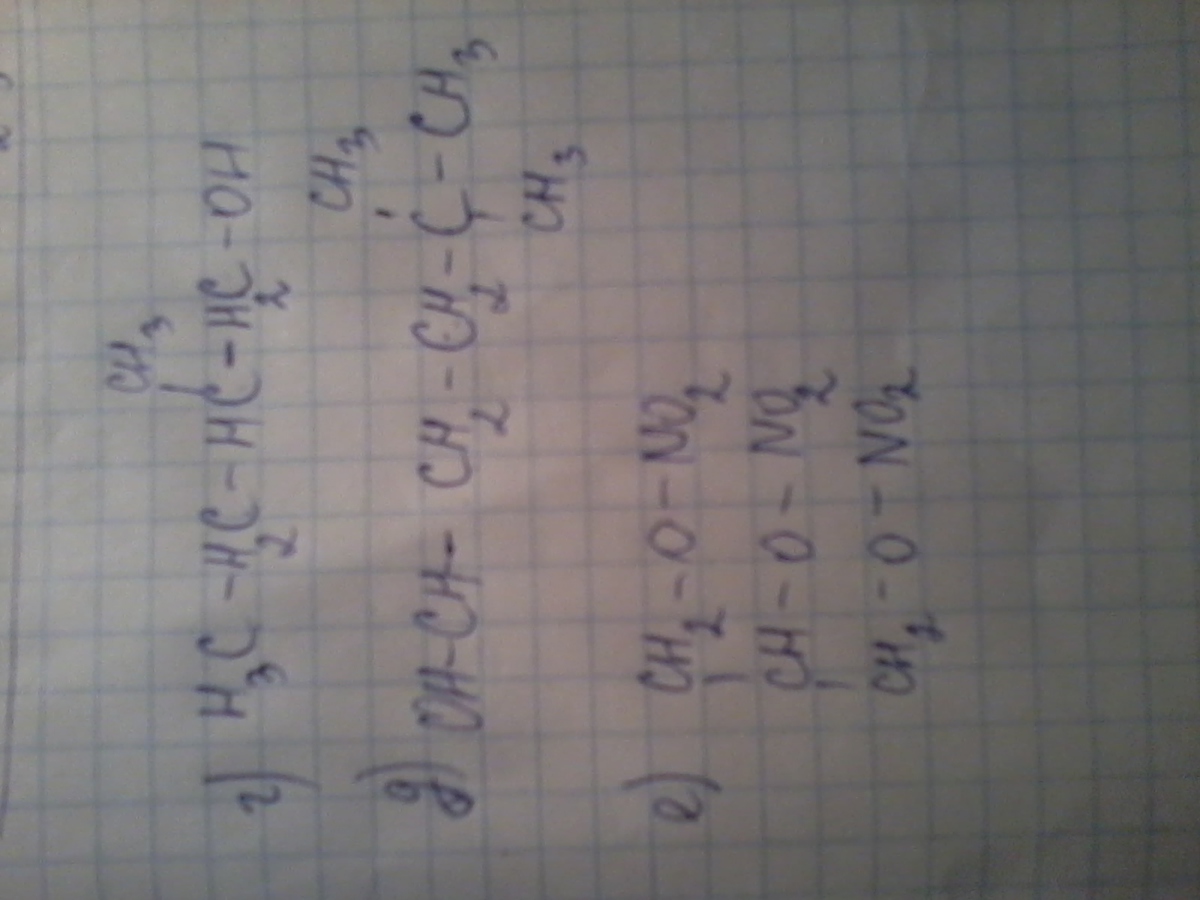 CH3
г) H3C - H2C - HC - H2C - OH
CH3
д) OH - CH - CH2 - CH2 - C - CH3
CH3
е) CH2 - O - NO2
CH - O - NO2
CH2 - O - NO2